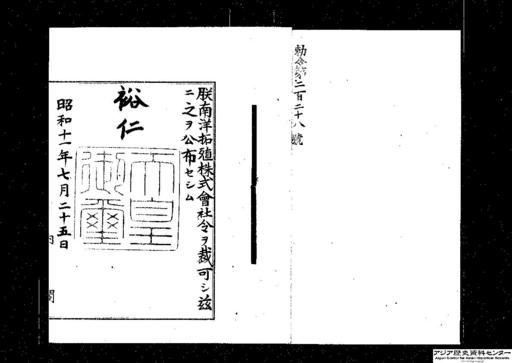 勅令第二百二十八號
朕南洋拓殖株式會社令ヲ裁可シ茲
ニ之ヲ公布セシム
裕仁
天皇
御璽
昭和十一年七月二十五日
内閣
アジア歴史資料センター
Japan Center for Asian Historical Records